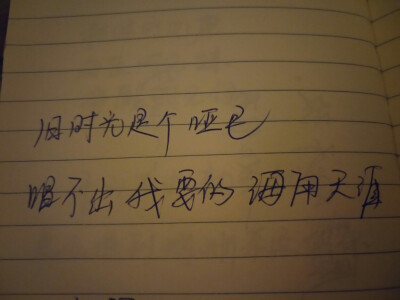 旧时光是个哑巴
唱不出我要的海角天涯